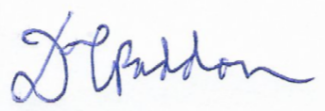 D C Paddon